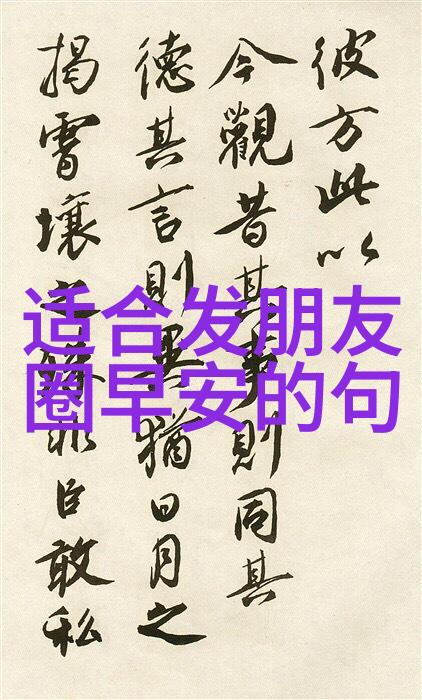 彼方此以
今觀昔其事則同其
德其言則異猶日月之
揭霄壤之殊非臣敢私
适合发朋友
圈早安的句